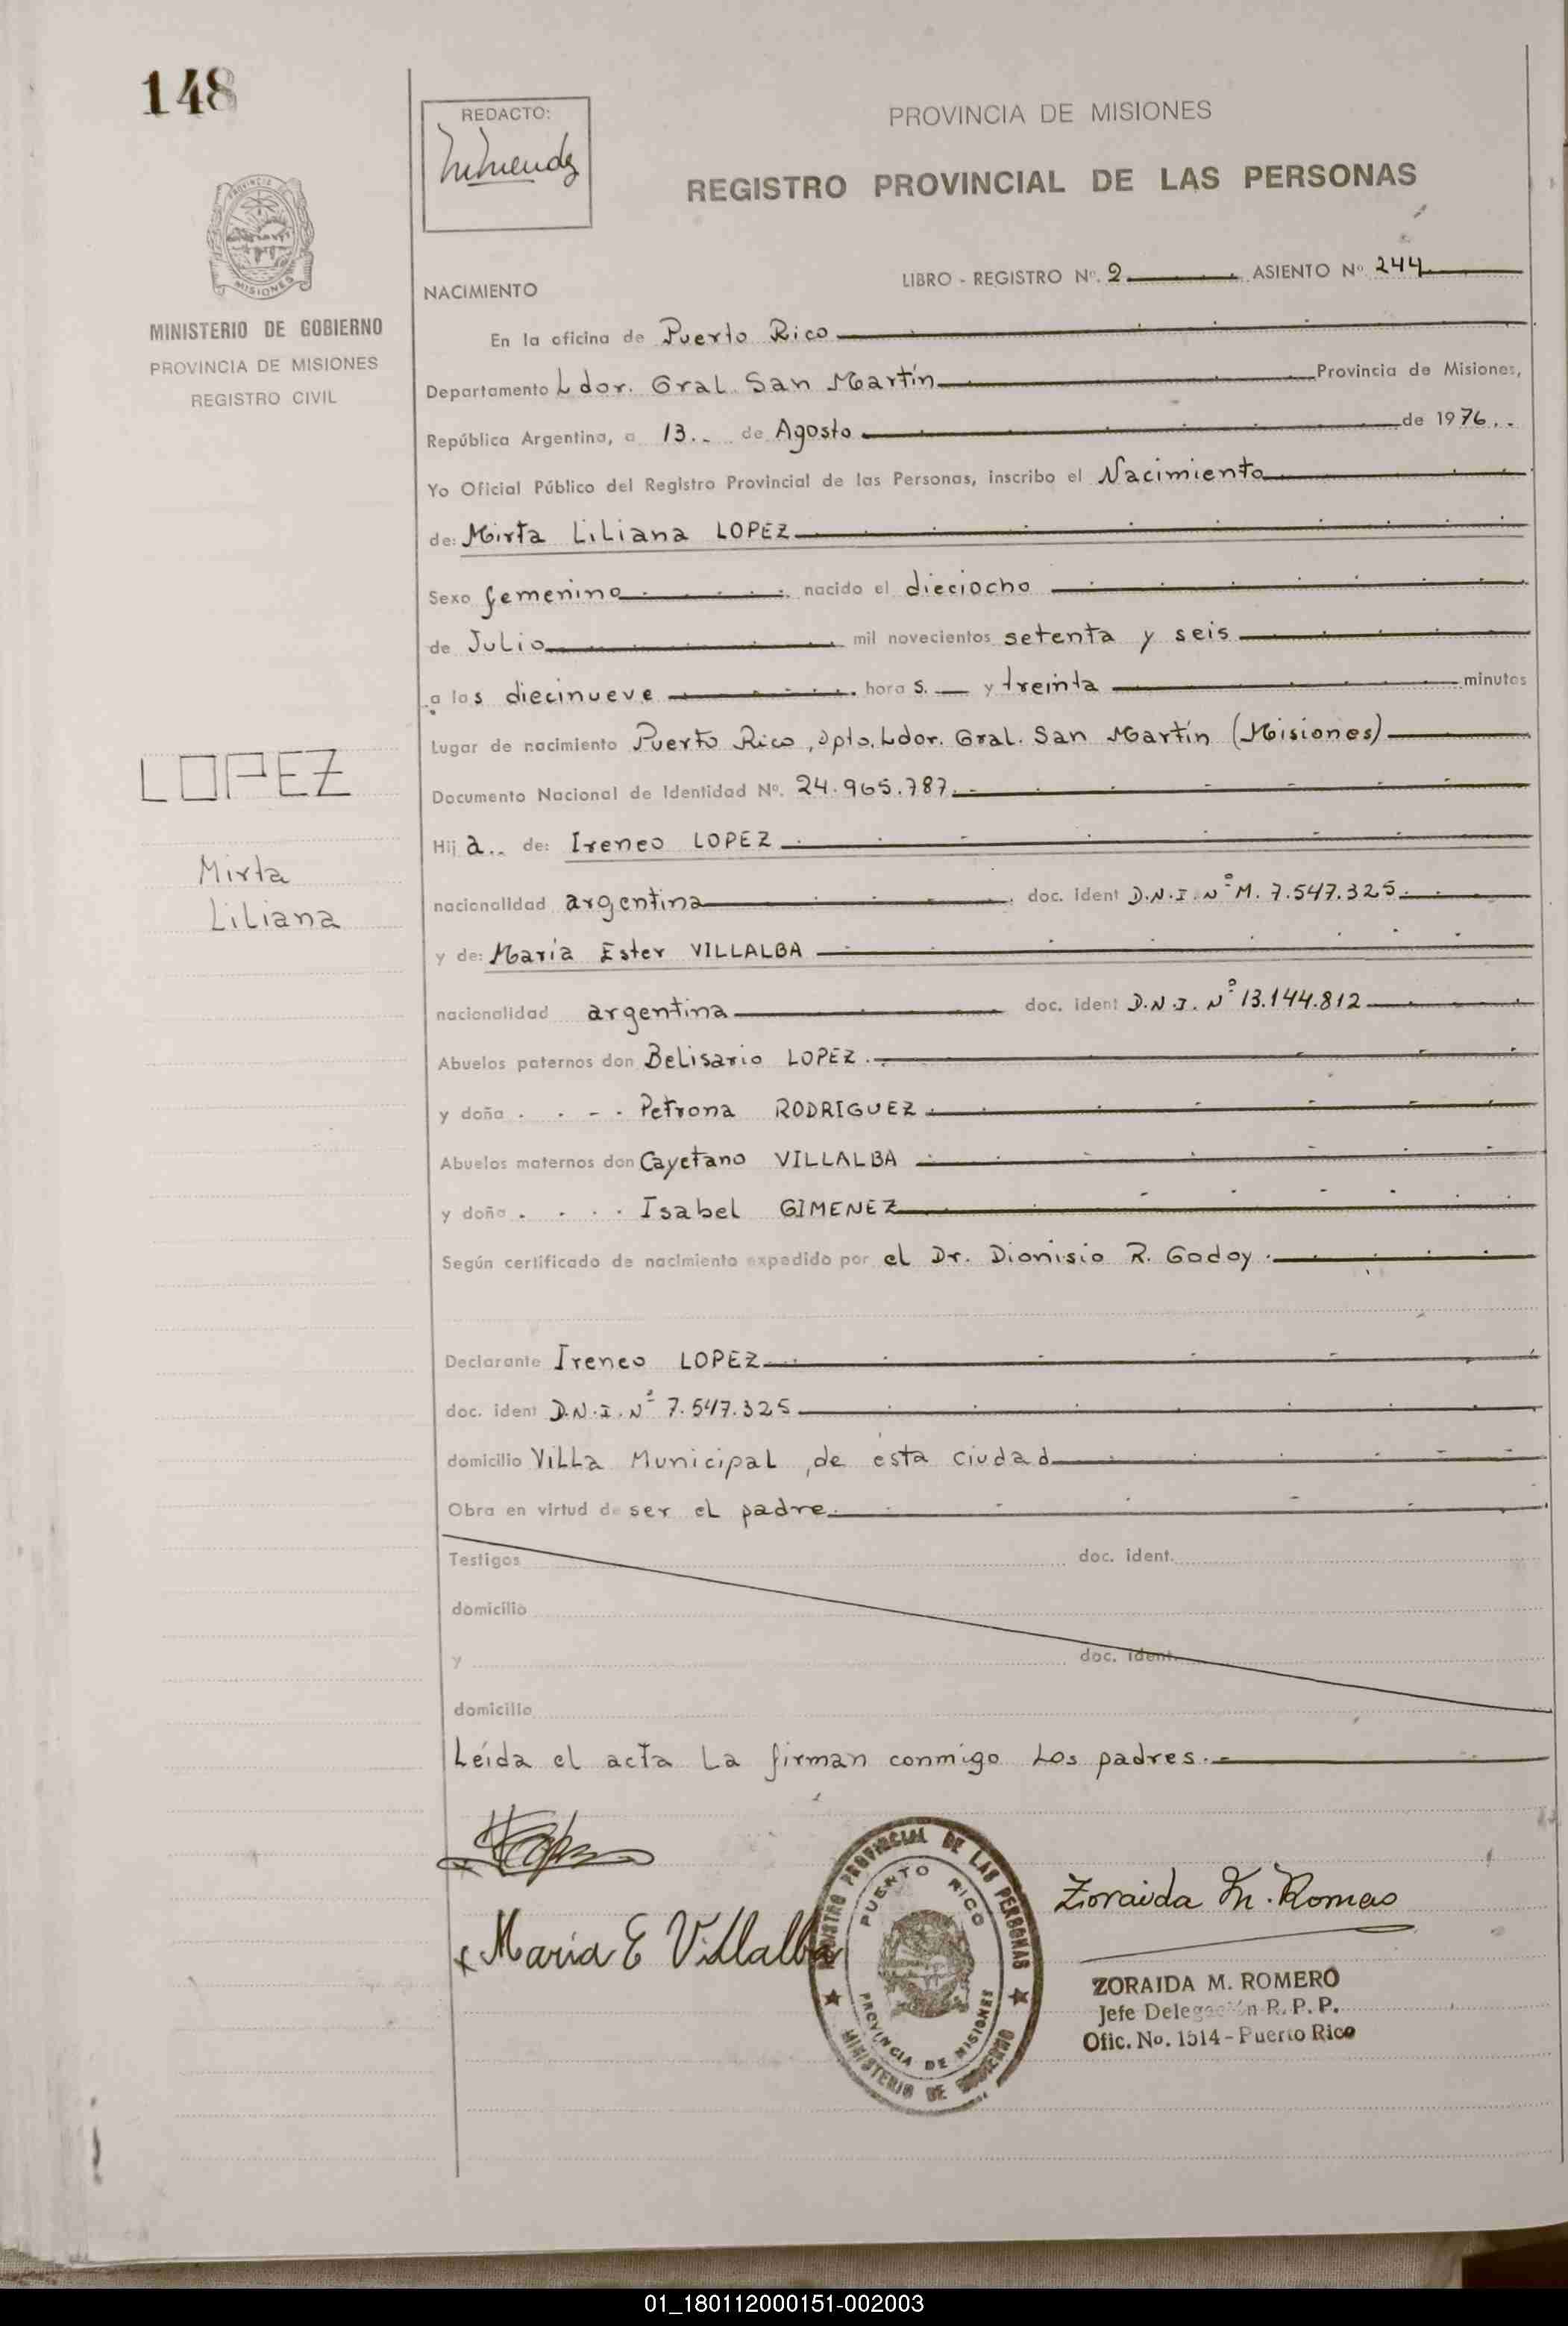 148
REDACTO:
PROVINCIA DE MISIONES
REGISTRO PROVINCIAL DE LAS PERSONAS
PROVINCIA DE
MISIONES
MINISTERIO DE GOBIERNO
PROVINCIA DE MISIONES
REGISTRO CIVIL
LIBRO - REGISTRO Nº. 2 ASIENTO Nº 244
NACIMIENTO
En la oficina de Puerto Rico
Departamento Ldor. Gral. San Martín Provincia de Misiones,
República Argentina, a 13.. de Agosto de 1976..
Yo Oficial Público del Registro Provincial de las Personas, inscribo el Nacimiento
de: Mirta Liliana LOPEZ
Sexo femenino nacido el dieciocho
de Julio mil novecientos setenta y seis
a las diecinueve horas. y treinta minutos
Lugar de nacimiento Puerto Rico, Dpto. Ldor. Gral. San Martín (Misiones)
Documento Nacional de Identidad Nº. 24.965.787.
LOPEZ
Mirta
Liliana
Hija.. de: Ireneo LOPEZ
nacionalidad argentina doc. ident D.N.I. Nº M. 7.547.325.
y de: María Ester VILLALBA
nacionalidad argentina doc. ident D.N.I. Nº 13.144.812
Abuelos paternos don Belisario LOPEZ.
y doña Petrona RODRIGUEZ.
Abuelos maternos don Cayetano VILLALBA
y doña Isabel GIMENEZ
Según certificado de nacimiento expedido por el Dr. Dionisio R. Godoy.
Declarante Ireneo LOPEZ
doc. ident D.N.I. Nº 7.547.325
domicilio Villa Municipal, de ésta ciudad
Obra en virtud de ser el padre.
Testigos doc. ident.
domicilio
y doc. ident.
domicilio
Leída el acta la firman conmigo los padres.
María E Villalba
REGISTRO PROVINCIAL DE LAS PERSONAS
PUERTO RICO
PROVINCIA DE MISIONES
MINISTERIO DE GOBIERNO
Zoraida M. Romero
ZORAIDA M. ROMERO
Jefe Delegación R. P. P.
Ofic. No. 1514 - Puerto Rico
01_180112000151-002003